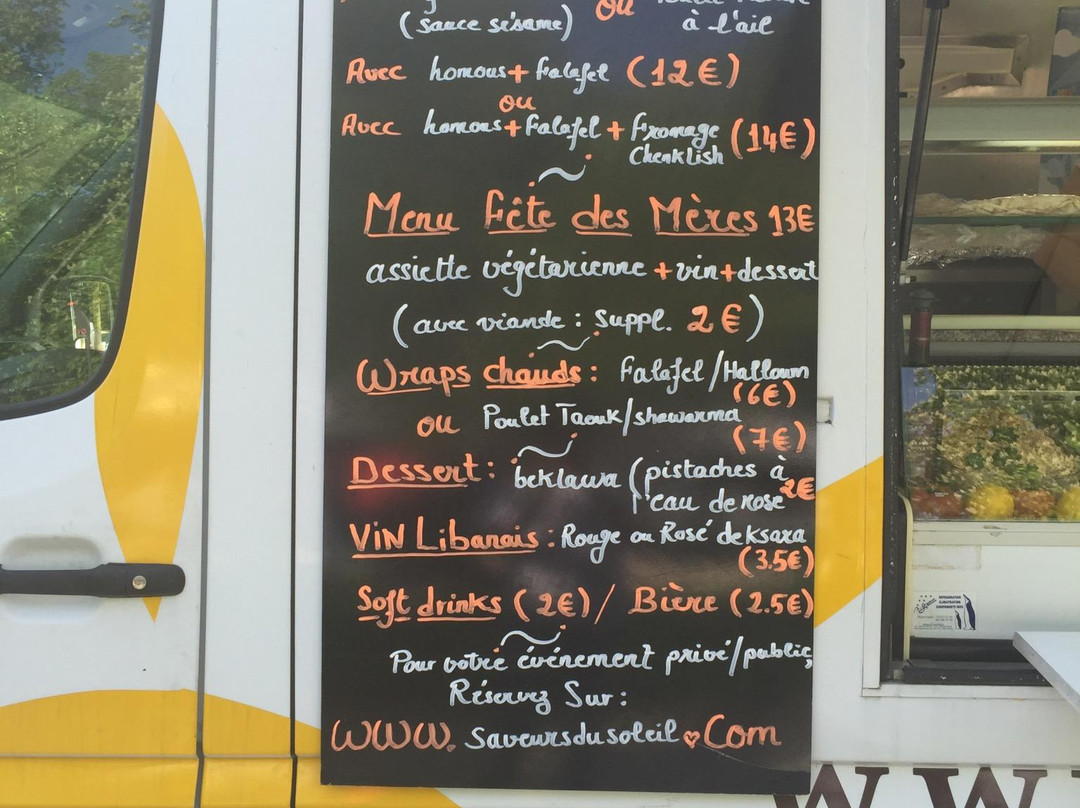 (sauce sésame) ou à l'ail
Avec homous + Falafel (12€)
ou
Avec homous + Falafel + Fromage (14€)
Chenklish
Menu Fête des Mères 13€
assiette végétarienne + vin + dessert
(avec viande : suppl. 2€)
Wraps chauds : Falafel / Halloum
(6€)
ou Poulet Taouk / shawarma
(7€)
Dessert : beklawa (pistaches à
l'eau de rose 2€
Vin Libanais : Rouge ou Rosé de ksara
(3.5€)
Soft drinks (2€) / Bière (2.5€)
Pour votre événement privé/public,
Réservez Sur :
WWW. Saveursdusoleil.Com
WW